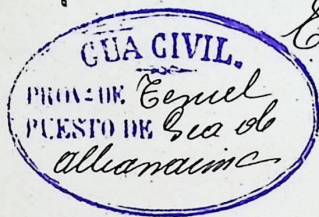 GUA CIVIL.
PROV. DE Teruel
PUESTO DE Gea de
Albarracin